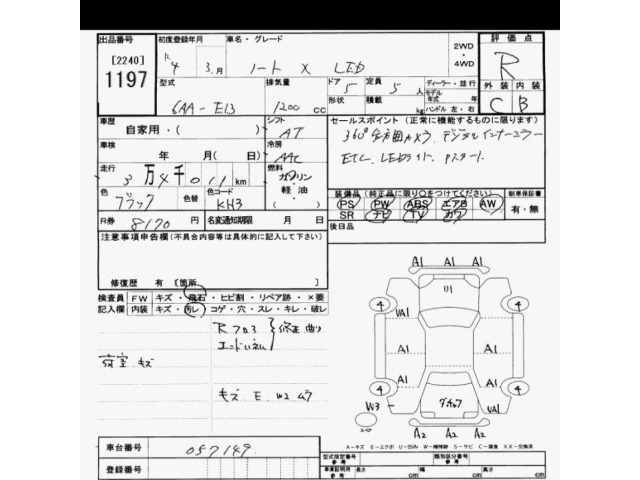 出品番号 初度登録年月 車名・グレード 2WD ・ 4WD 評価点
[2240] R4 3.月 ノート X LED R
1197 型式 排気量 ドア 5 定員 5人 ディーラー・並行 外装 内装
6AA-E13 1200 cc 形状 積載 kg モデル年式 年 ハンドル 左・右 C B
車歴 シフト セールスポイント(正常に機能するものに限り)
自家用・( ) AT 360°全方囲カメラ、デジタルインナーミラー
車検 年 月(日) 冷房 AAC ETC、LEDライト、Pスタート
走行 3万4千011km 燃料 ガソリン 軽油 ( )
装備品(純正品に限り○をつけてください) 新車保証書
色 ブラック 色替 色コード KH3 PS PW ABS エアB AW 有・無
SR ナビ TV カワ
R券 8170 円 名変通知期限 月 日 後日品
注意事項申告欄(不具合内容等は具体的に記入して下さい)
修復歴 有〔箇所 〕
検査員 FW キズ・飛石・ヒビ割・リペア跡・×要
記入欄 内装 キズ・汚レ・コゲ・穴・スレ・キレ・破レ
Rフロア 修正 曲り
エンドパネル
荷室 キズ
キズ E W2 ムラ
A1 A1 A1
4 UA1 リ 4
A1 A1
4 4
W3 ダ・キョウ UA1
スペア A2 A1 A2
A-キズ E-エクボ U-凹み W-補修跡 S-サビ C-腐食 XX-交換済
車台番号 057149 型式指定番号 参考 類別区分番号 参考
登録番号 車庫証明用 参考 長さ cm 幅 cm 高さ cm